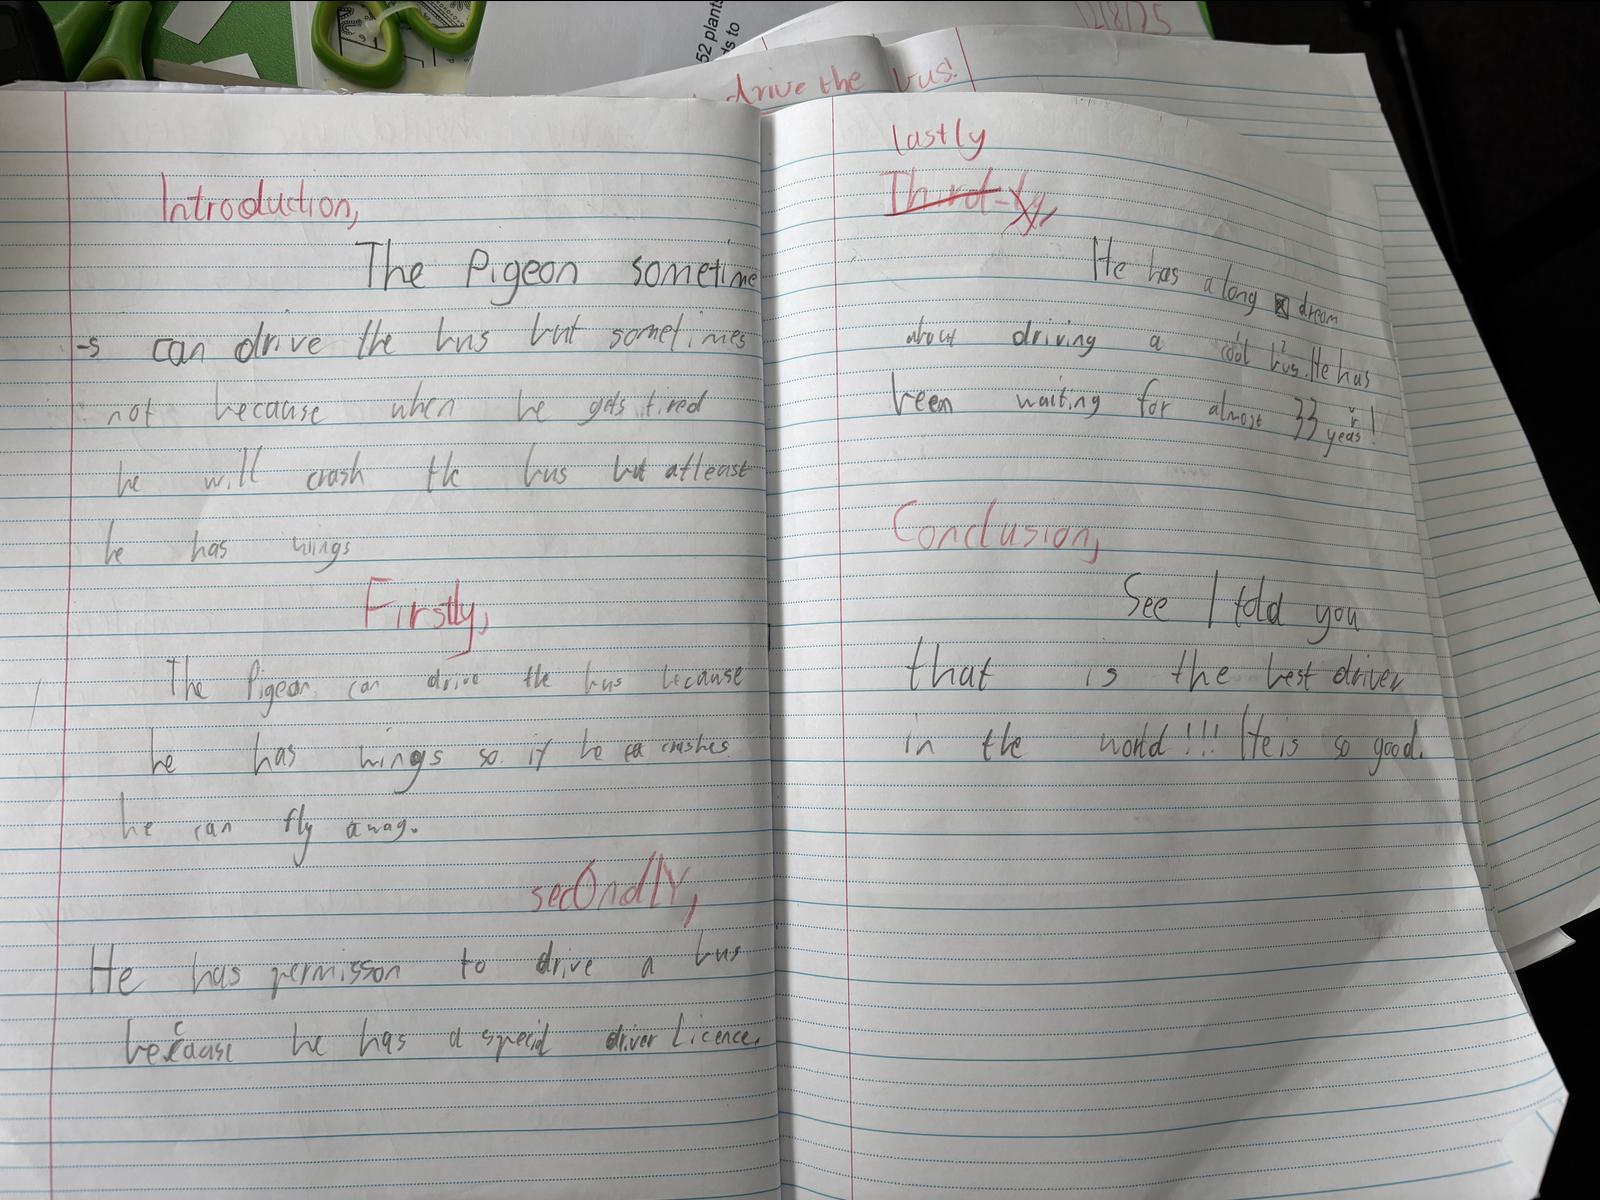 52 plants
ds to
12/8/25
drive the bus!
Introduction,
The Pigeon sometime
-s can drive the bus but sometimes
not because when he gets tired
he will crash the bus but atleast
he has wings
Firstly,
The Pigeon can drive the bus because
he has wings so if he crashes
he can fly away.
secOndly,
He has permisson to drive a bus
because he has a special driver Licence.
lastly
Third-ly,
He has along dream
about driving a cool bus. He has
been waiting for almost 33 years!
Conclusion,
See I told you
that is the best driver
in the world!!! He is so good.